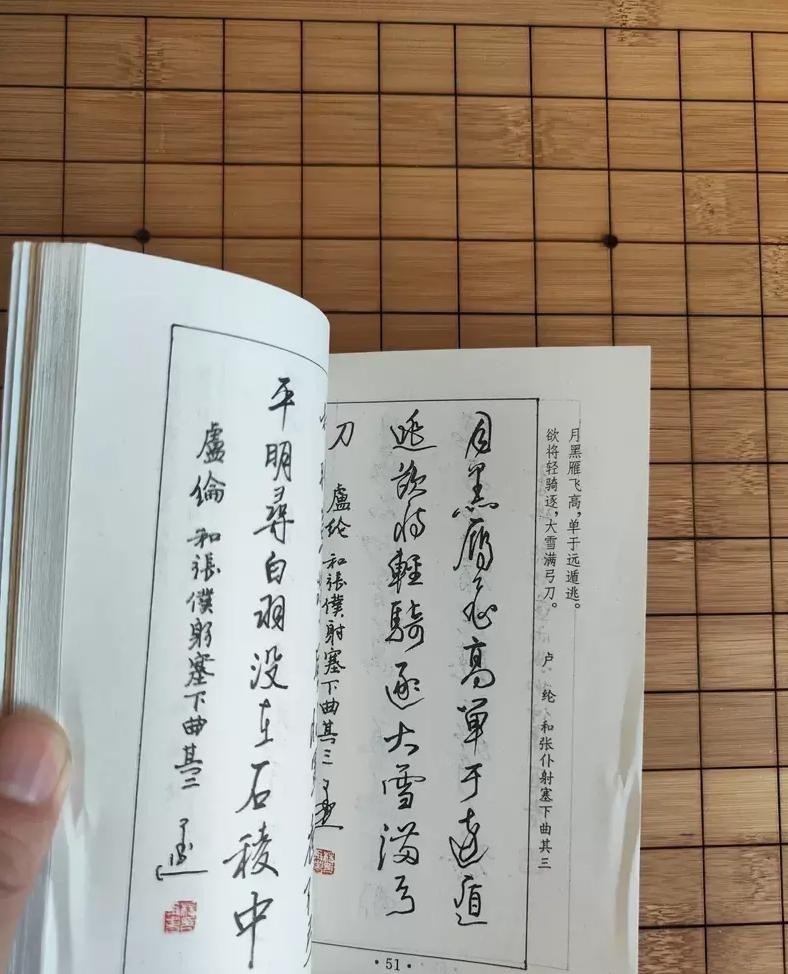 月黑雁飞高，单于远遁逃。
欲将轻骑逐，大雪满弓刀。
卢 纶 和张仆射塞下曲其三
月黑雁飛高單于遠遁
逃欲將輕騎逐大雪滿弓
刀 盧纶 和張僕射塞下曲其三
·51·
平明尋白羽没在石稜中
盧倫 和張僕射塞下曲其二